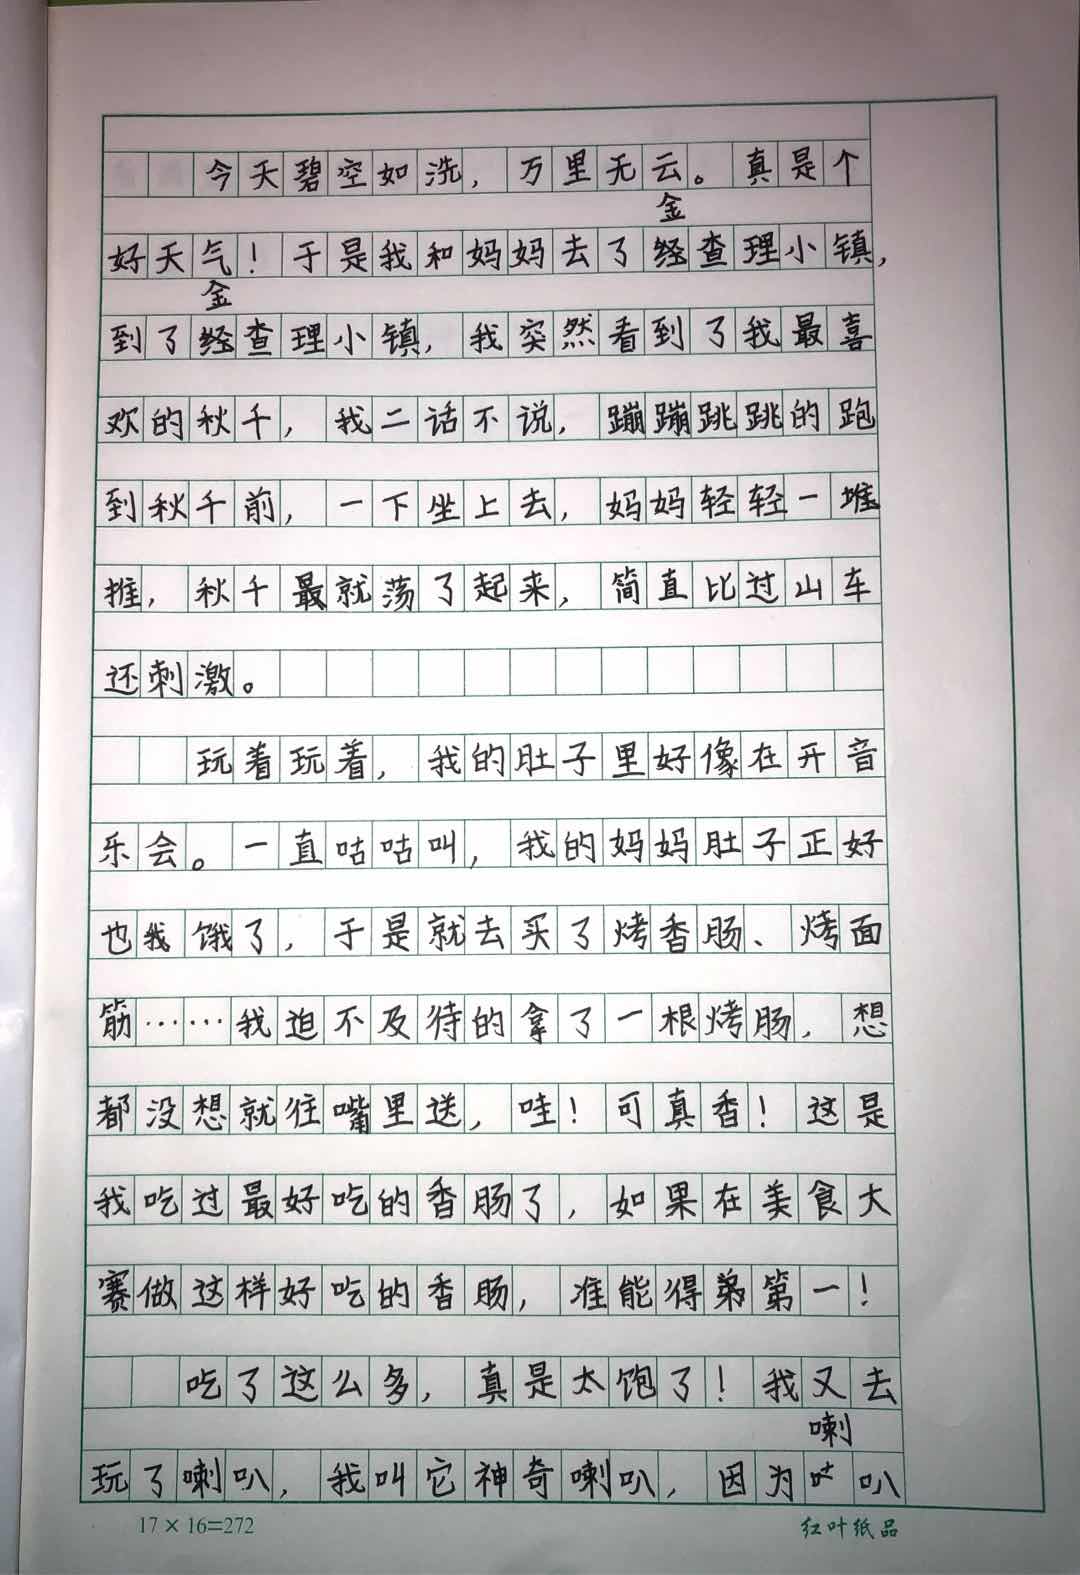 今天碧空如洗，万里无云。真是个
金
好天气！于是我和妈妈去了经查理小镇，
金
到了经查理小镇，我突然看到了我最喜
欢的秋千，我二话不说，蹦蹦跳跳的跑
到秋千前，一下坐上去，妈妈轻轻一堆
推，秋千最就荡了起来，简直比过山车
还刺激。
玩着玩着，我的肚子里好像在开音
乐会。一直咕咕叫，我的妈妈肚子正好
也我饿了，于是就去买了烤香肠、烤面
筋……我迫不及待的拿了一根烤肠，想
都没想就往嘴里送，哇！可真香！这是
我吃过最好吃的香肠了，如果在美食大
赛做这样好吃的香肠，准能得弟第一！
吃了这么多，真是太饱了！我又去
喇
玩了喇叭，我叫它神奇喇叭，因为叭
17×16=272
红叶纸品